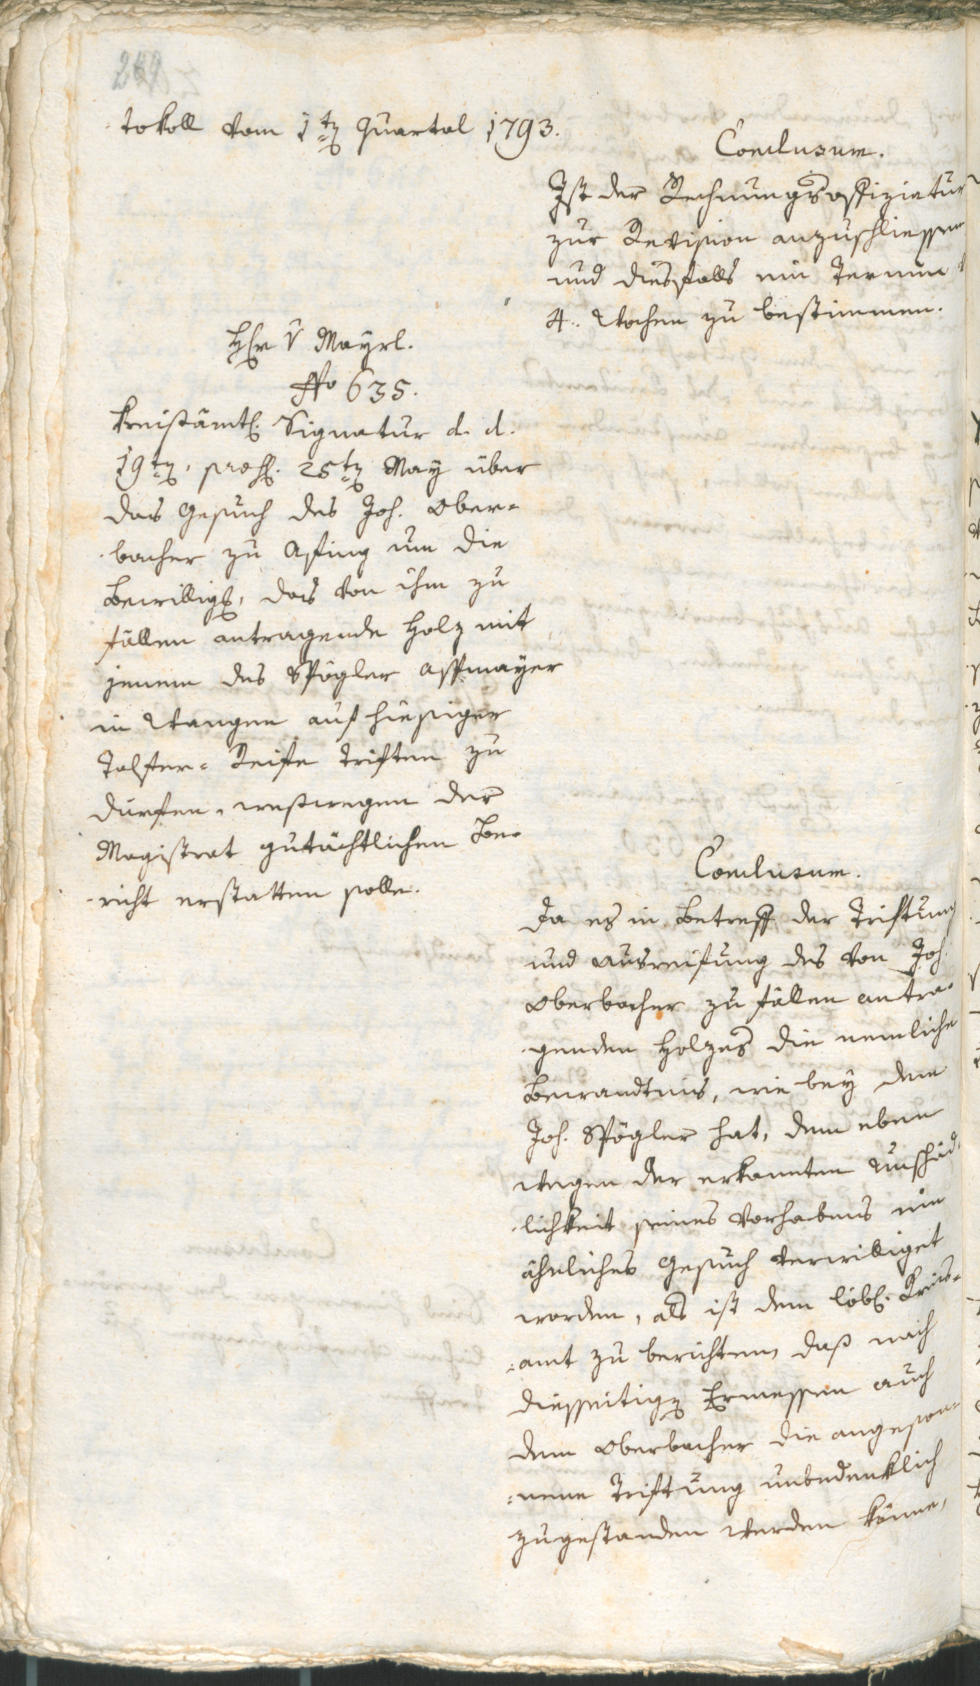 269
tokoll vom 1ten Quartal 1793.
Conclusum.
Ist der Rechnungsoffiziatur
zur Revision anzuschliessen
und diesfalls ein Termin
4. Wochen zu bestimmen.
Hr v Mayrl.
No 635.
Kreisämtl. Signatur d. d.
19ten, 25ten May über
das Gesuch des Joh. Ober-
bacher zu Afing um die
Bewilligg, das von ihm zu
fällen antragende Holz mit
jenem des Spögler Assmayer
in Wangen auf hiesiger
Talfer- Reife triften zu
dürfen, weßwegen der
Magistrat gutächtlichen Be-
richt erstatten solle.
Conclusum.
Da es in Betreff der Triftung
und Ausreifung des von Joh.
Oberbacher zu fällen antra-
genden Holzes die nemliche
Bewandtnis, wie bey dem
Joh. Spögler hat, dem eben
wegen der erkannten Unschäd-
lichkeit seines Vorhabens ein
ähnliches Gesuch verwilliget
worden, als ist dem löbl. Kreis-
amt zu berichten, daß nach
diesseitigen Ermessen auch
dem Oberbacher die angeson-
nene Triftung unbedenklich
zugestanden werden könne,